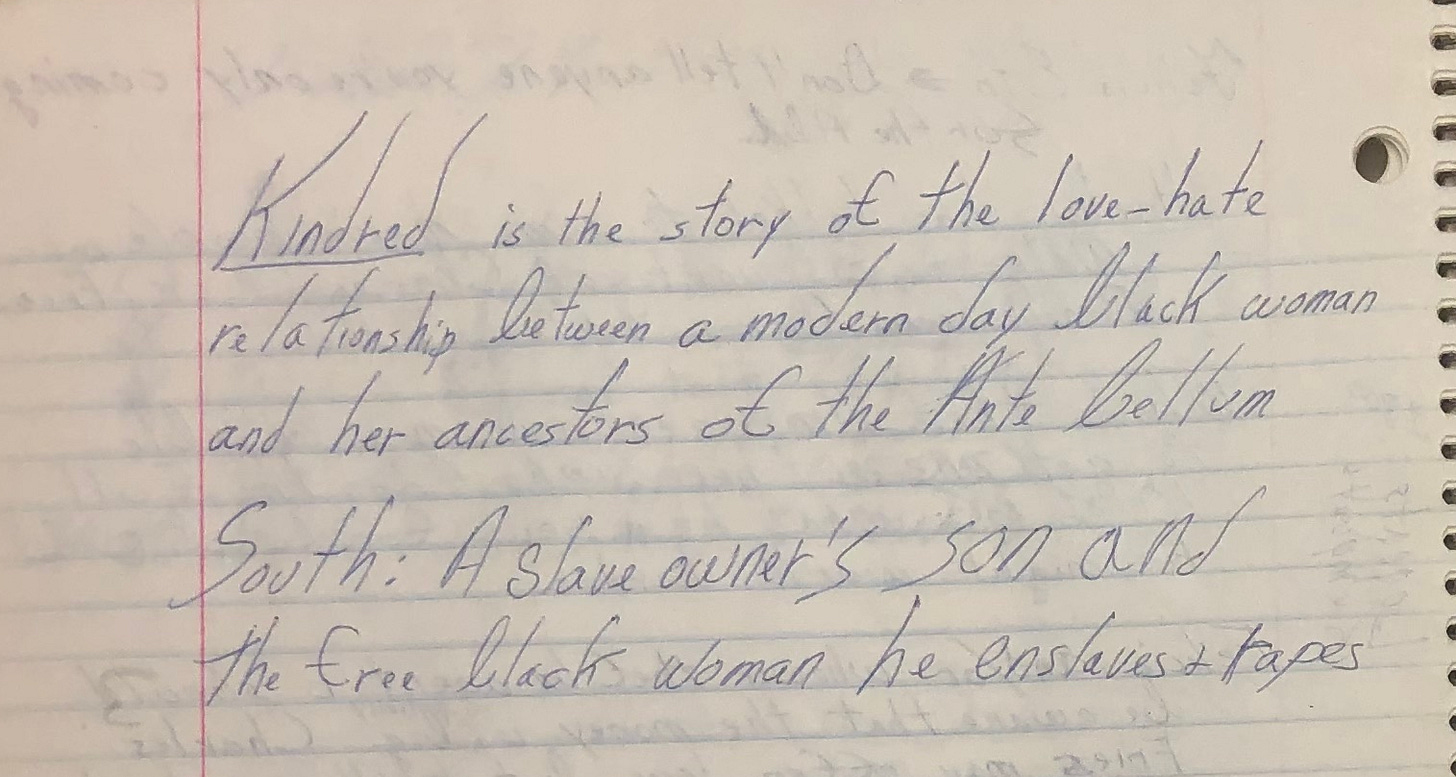 Kindred is the story of the love-hate
relationship between a modern day black woman
and her ancestors of the Ante bellum
South: A slave owner's son and
the free black woman he enslaves & rapes